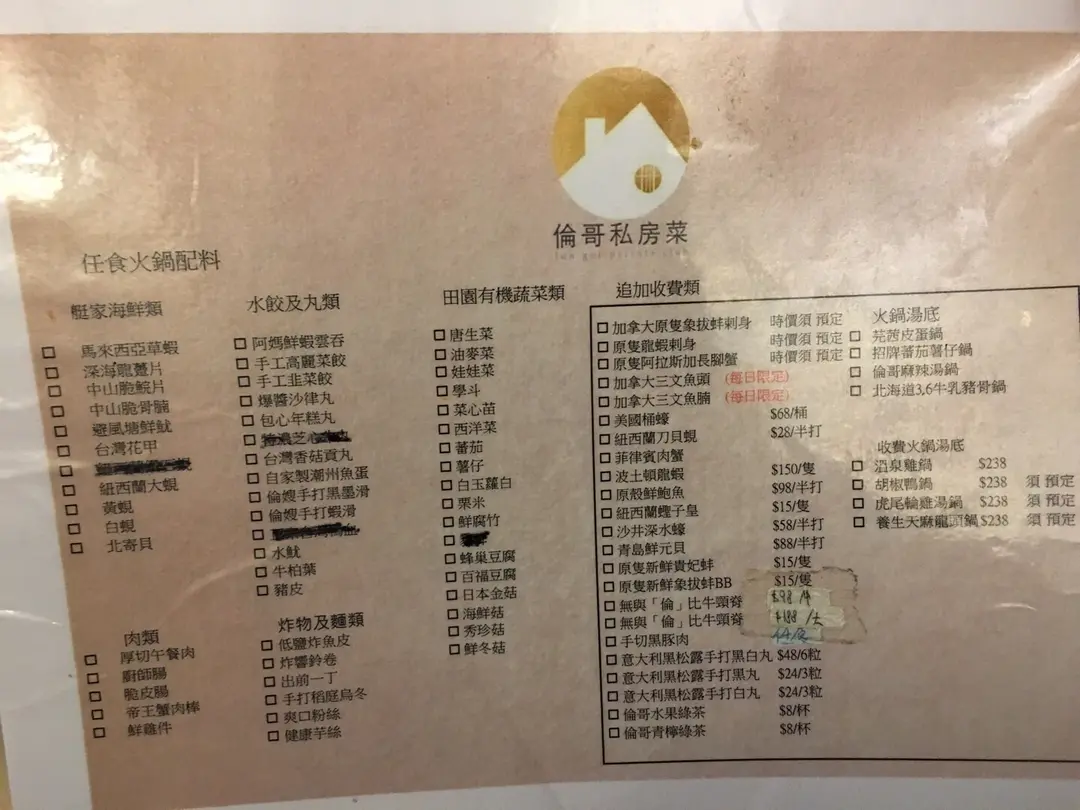 倫哥私房菜
任食火鍋配料
艇家海鮮類
馬來西亞草蝦
深海龍躉片
中山脆鯇片
中山脆骨腩
避風塘鮮魷
台灣花甲
紐西蘭大蜆
黃蜆
白蜆
北寄貝
肉類
厚切午餐肉
廚師腸
脆皮腸
帝王蟹肉棒
鮮雞件
水餃及丸類
阿媽鮮蝦雲吞
手工高麗菜餃
手工韭菜餃
爆醬沙律丸
包心年糕丸
台灣香菇貢丸
自家製潮州魚蛋
倫嫂手打黑墨滑
倫嫂手打蝦滑
水魷
牛柏葉
豬皮
炸物及麵類
低鹽炸魚皮
炸響鈴卷
出前一丁
手打稻庭烏冬
爽口粉絲
健康芋絲
田園有機蔬菜類
唐生菜
油麥菜
娃娃菜
學斗
菜心苗
西洋菜
蕃茄
薯仔
白玉蘿白
栗米
鮮腐竹
蜂巢豆腐
百福豆腐
日本金菇
海鮮菇
秀珍菇
鮮冬菇
追加收費類
加拿大原隻象拔蚌刺身 時價須 預定
原隻龍蝦刺身 時價須 預定
原隻阿拉斯加長腳蟹 時價須 預定
加拿大三文魚頭 (每日限定)
加拿大三文魚腩 (每日限定)
美國桶蠔 $68/桶
紐西蘭刀貝蜆 $28/半打
菲律賓肉蟹
波士頓龍蝦 $150/隻
原殼鮮鮑魚 $98/半打
紐西蘭蟶子皇 $15/隻
沙井深水蠔 $58/半打
青島鮮元貝 $88/半打
原隻新鮮貴妃蚌 $15/隻
原隻新鮮象拔蚌BB $15/隻
無與「倫」比牛頸脊 $98/
無與「倫」比牛頸脊 $188/大
手切黑豚肉
意大利黑松露手打黑白丸 $48/6粒
意大利黑松露手打黑丸 $24/3粒
意大利黑松露手打白丸 $24/3粒
倫哥水果綠茶 $8/杯
倫哥青檸綠茶 $8/杯
火鍋湯底
芫茜皮蛋鍋
招牌蕃茄薯仔鍋
倫哥麻辣湯鍋
北海道3.6牛乳豬骨鍋
收費火鍋湯底
酒泉雞鍋 $238
胡椒鴨鍋 $238 須 預定
虎尾輪雞湯鍋 $238 須 預定
養生天麻龍頭鍋 $238 須 預定